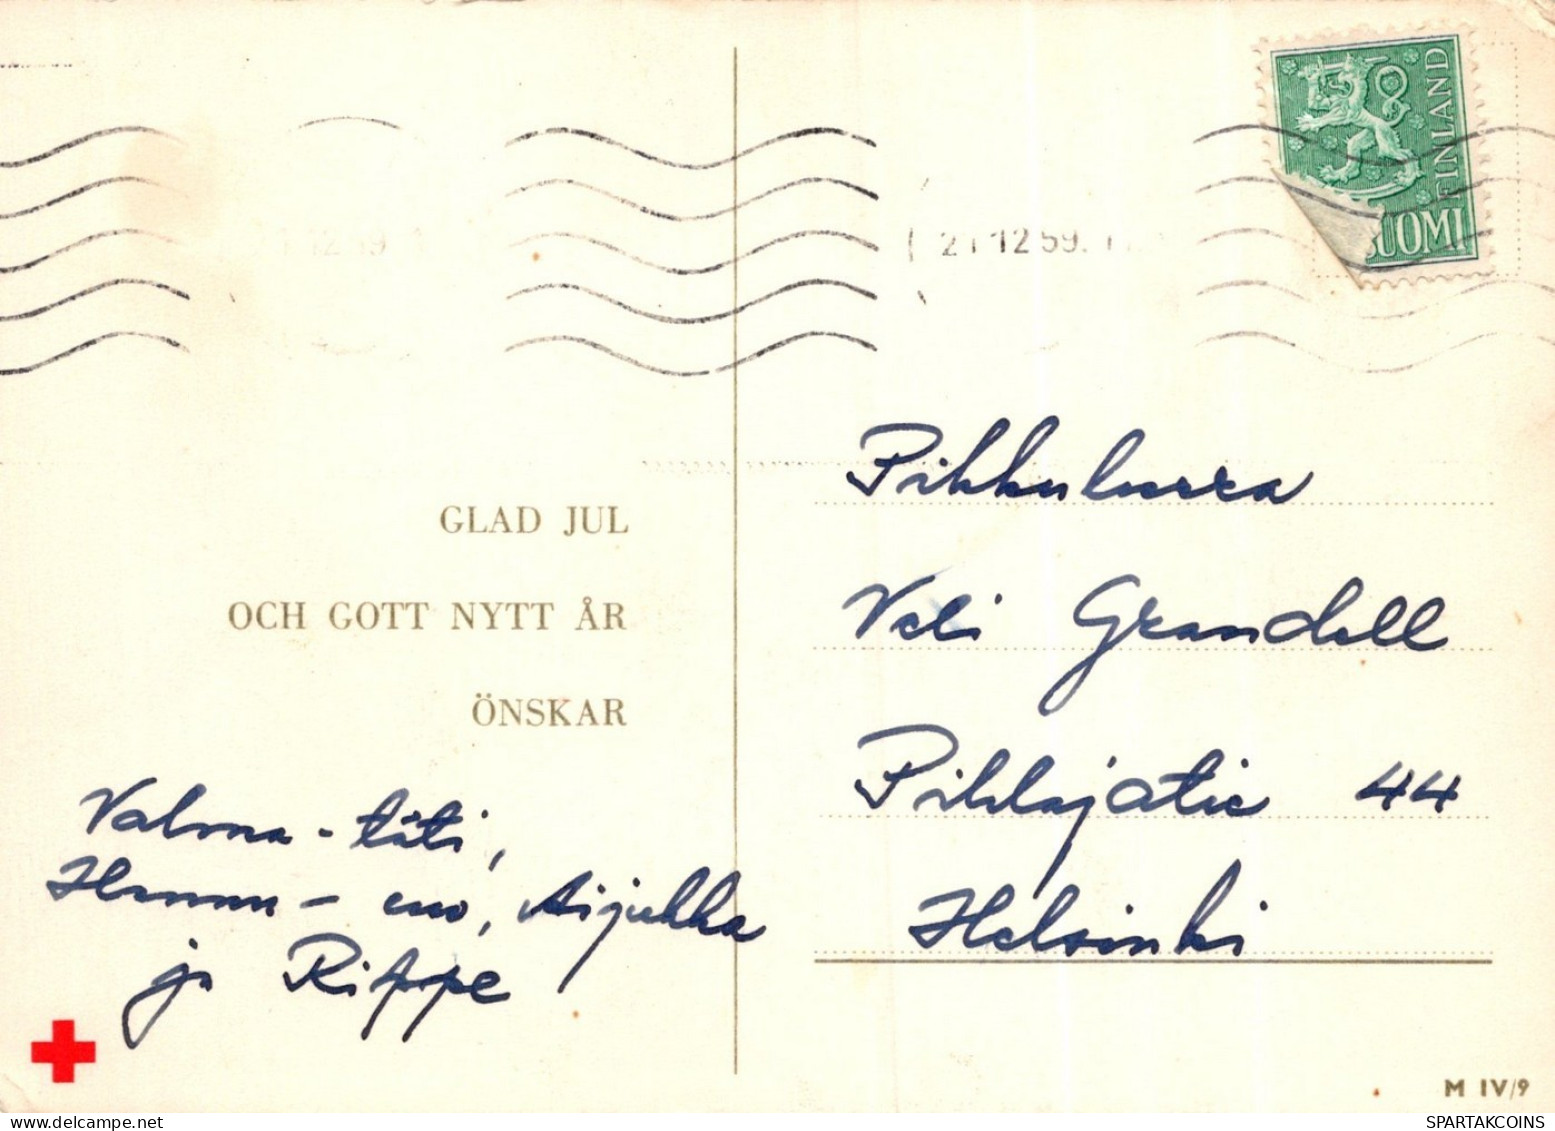 FINLAND
SUOMI
21 12 59
GLAD JUL
OCH GOTT NYTT ÅR
ÖNSKAR
Valma-täti,
Hannu-eno, Aijukka
ja Rippe
Pikkuherra
Veli Grandell
Pihlajatie 44
Helsinki
M IV/9
SPARTAKCOINS